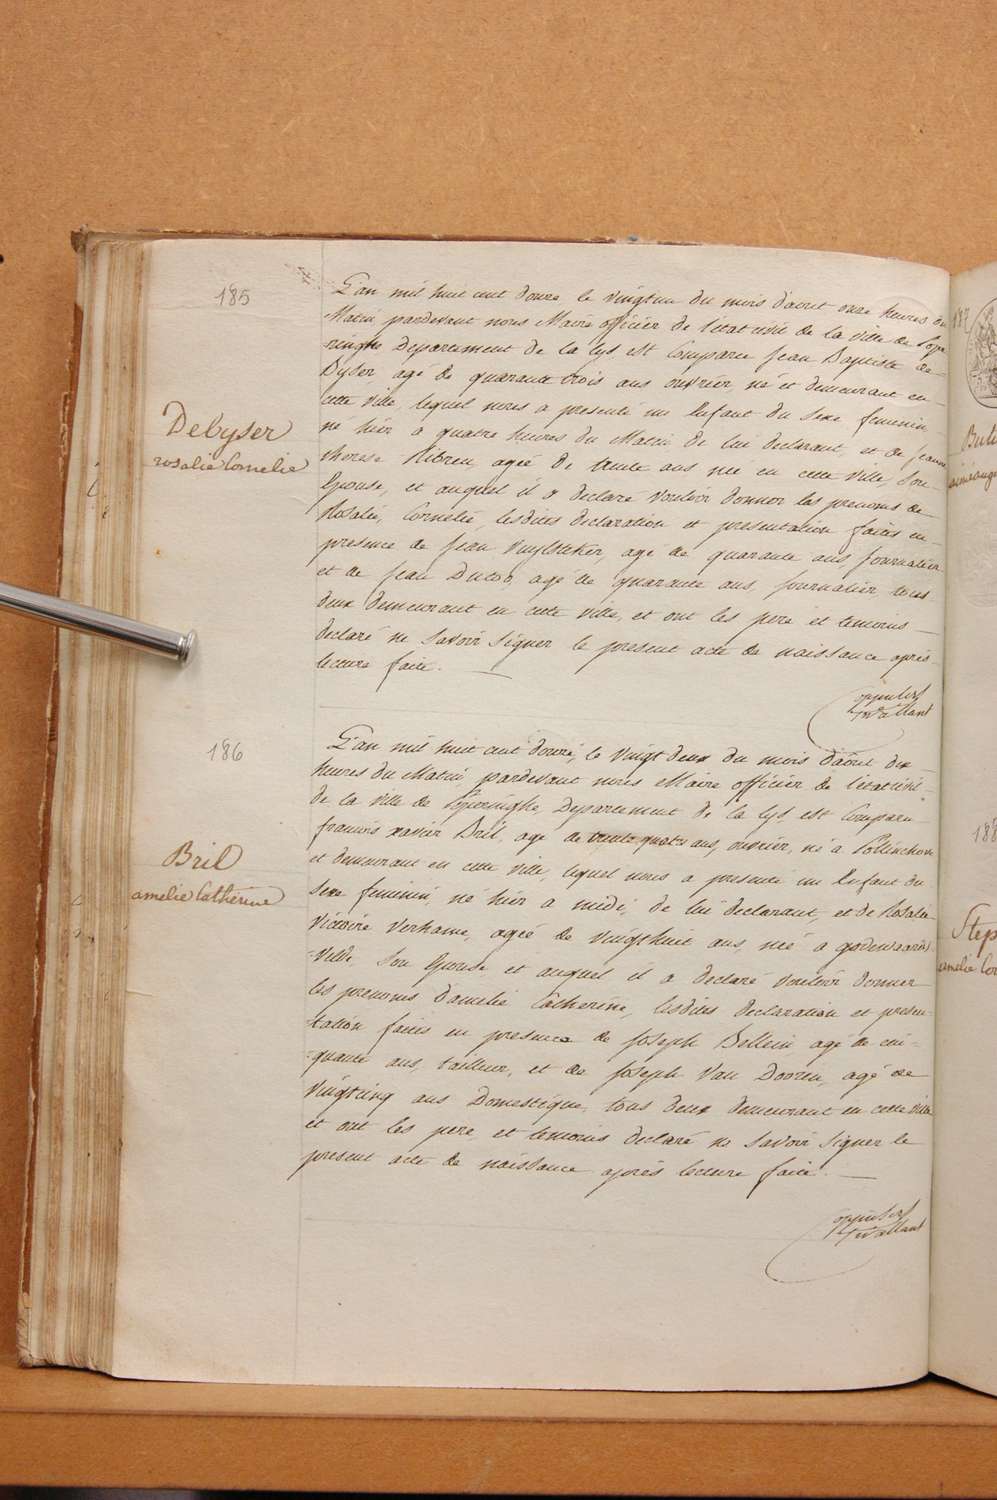 185
L'an mil huit cent douze, le vingtun du mois d'aout onze heures du
Matin pardevant nous Maire officier de l'etat civil de la ville de Pope
ringhe Departement de la Lys est Comparu Jean Baptiste de-
Byser, agé de quarante trois ans ouvrier, né et demeurant en-
cette ville, lequel nous a presenté un Enfant du Sexe feminin-
né hier a quatre heures du Matin de lui declarant, et de Jeanne
therese Ribreu, agée de trente ans née en cette ville, son
Epouse, et auquel il a declaré vouloir donner les prenoms de
Rosalie, Cornelie, lesdites declaration et presentation faites en-
presence de Jean Vuylsteker, agé de quarante ans journalier
et de Jean agé de quarante ans, journalier, tous
deux demeurant en cette ville, et ont les pere et temoins
declaré ne savoir signer le present acte de naissance après
lecture faite.
Debyser
rosalie Cornelie
186
L'an mil huit cent douze, le vingt deux du mois d'aout dix
heures du Matin, pardevant nous Maire officier de l'etat civil-
de la ville de Poperinghe, Departement de la Lys est Comparu
francois xavier Bril, agé de trente quatre ans, ouvrier, né a Pollinchove
et demeurant en cette ville, lequel nous a presenté un Enfant du
sexe feminin, né hier a midi, de lui declarant, et de Rosalie
Victoire Verhame, agée de vingthuit ans, née a godewaards
-velde, son Epouse et auquel il a declaré vouloir donner
les prenoms d'amelie Catherine, lesdites declaration et presen
tation faites en presence de Joseph Bellein agé de cin-
-quante ans, tailleur, et de Joseph Van Dooren, agé de
vingtcinq ans Domestique, tous deux demeurant en cette ville
et ont les pere, et temoins declaré ne savoir signer le
present acte de naissance après lecture faite.
Bril
amelie Catherine
187
188
Step
amelie Cor